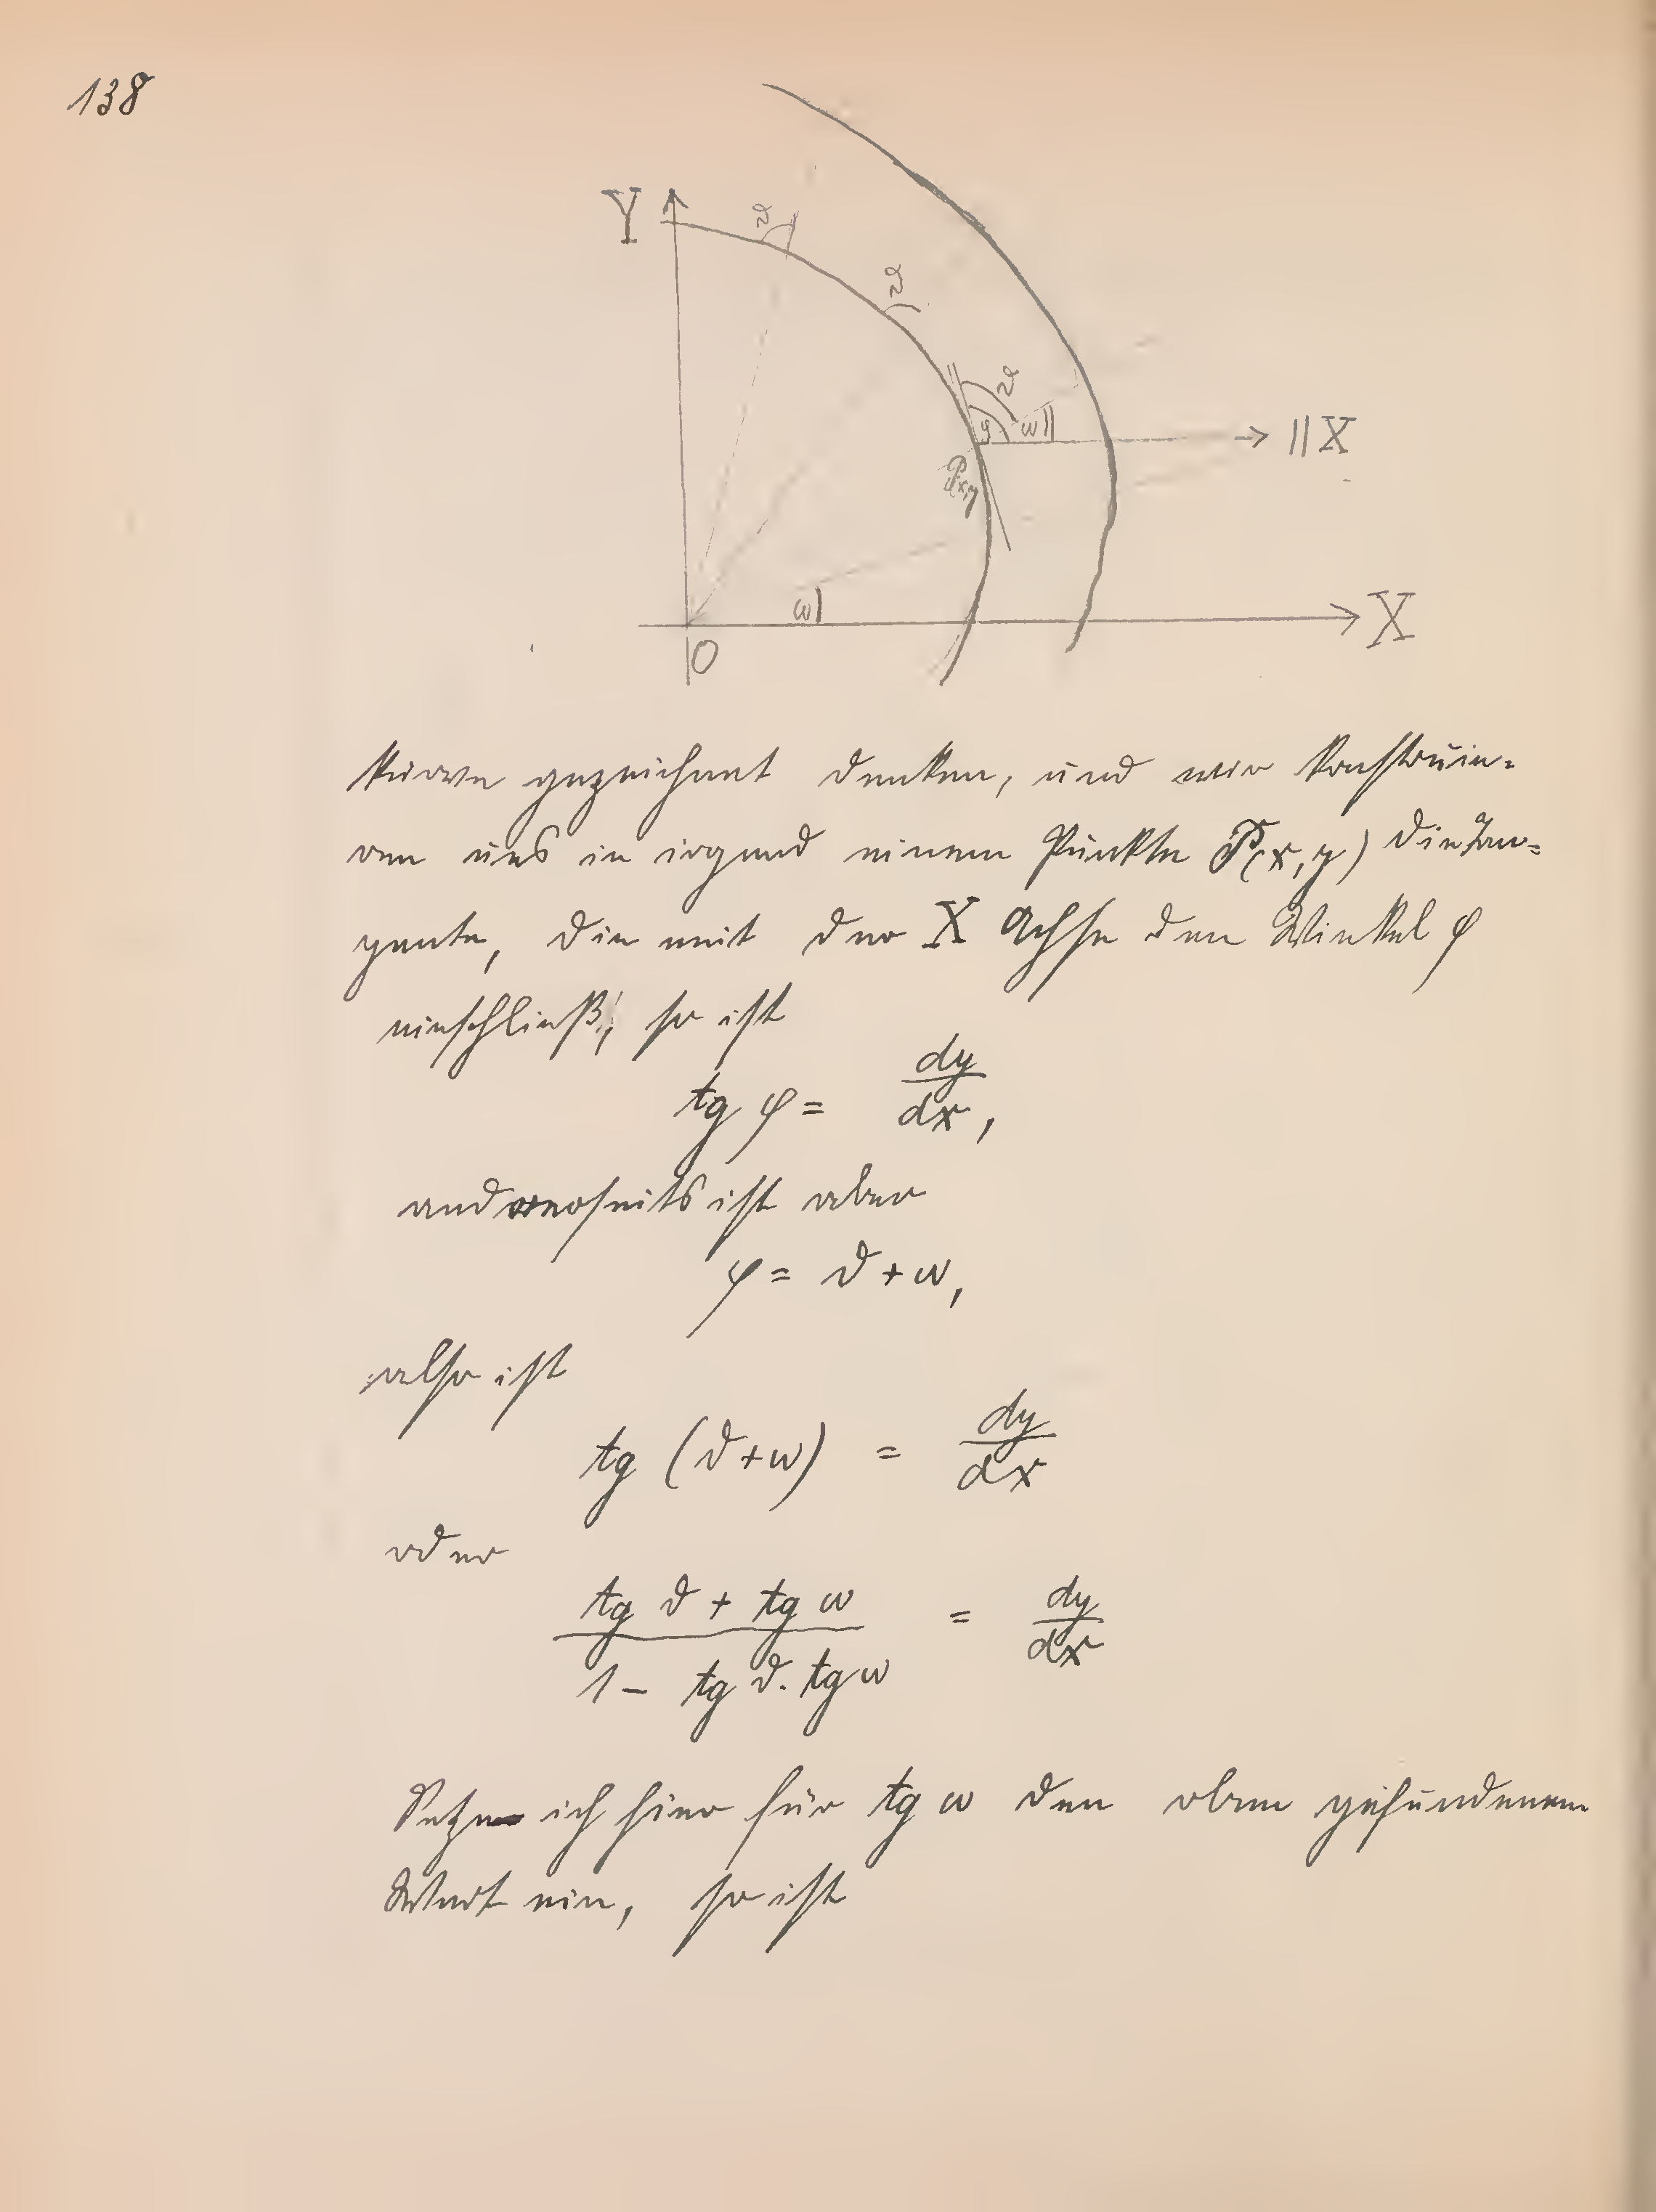 138
Y
ϑ
ϑ
ϑ
φ ω
|| X
P x,y
ω
X
O
Kurve gezeichnet denken, und wir konstruie-
ren uns in irgend einem Punkte P(x,y) die Tan-
gente, die mit der X Achse den Winkel φ
einschließt, so ist
tg φ = dy/dx,
andrerseits ist aber
φ = ϑ + ω,
also ist
tg (ϑ+ω) = dy/dx
oder
(tg ϑ + tg ω)/(1 - tg ϑ. tg ω) = dy/dx
Setze ich hier für tg ω den oben gefundenen
Wert ein, so ist